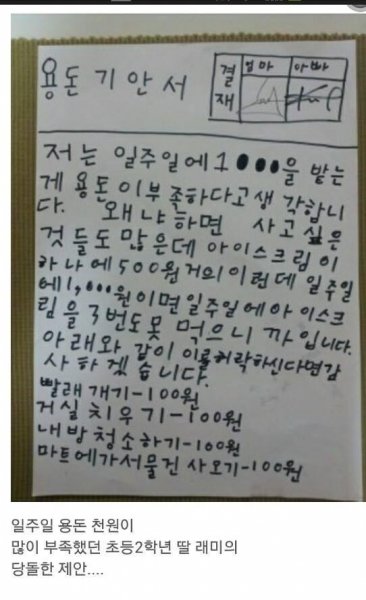 용돈 기안서
결재 엄마 아빠
저는 일주일에 1●●●을 받는
게 용돈이 부족하다고 생각합니
다. 왜냐하면 사고 싶은
것들도 많은데 아이스크림이
하나에 500원 거의 이런데 일주일
에 1,000원이면 일주일에 아이스크
림을 3번도 못 먹으니까 입니다.
아래와 같이 이를 허락하신다면 감
사하겠습니다.
빨래 개기-100원
거실 치우기-100원
내 방 청소하기-100원
마트에 가서 물건 사오기-100원
일주일 용돈 천원이
많이 부족했던 초등2학년 딸 래미의
당돌한 제안....